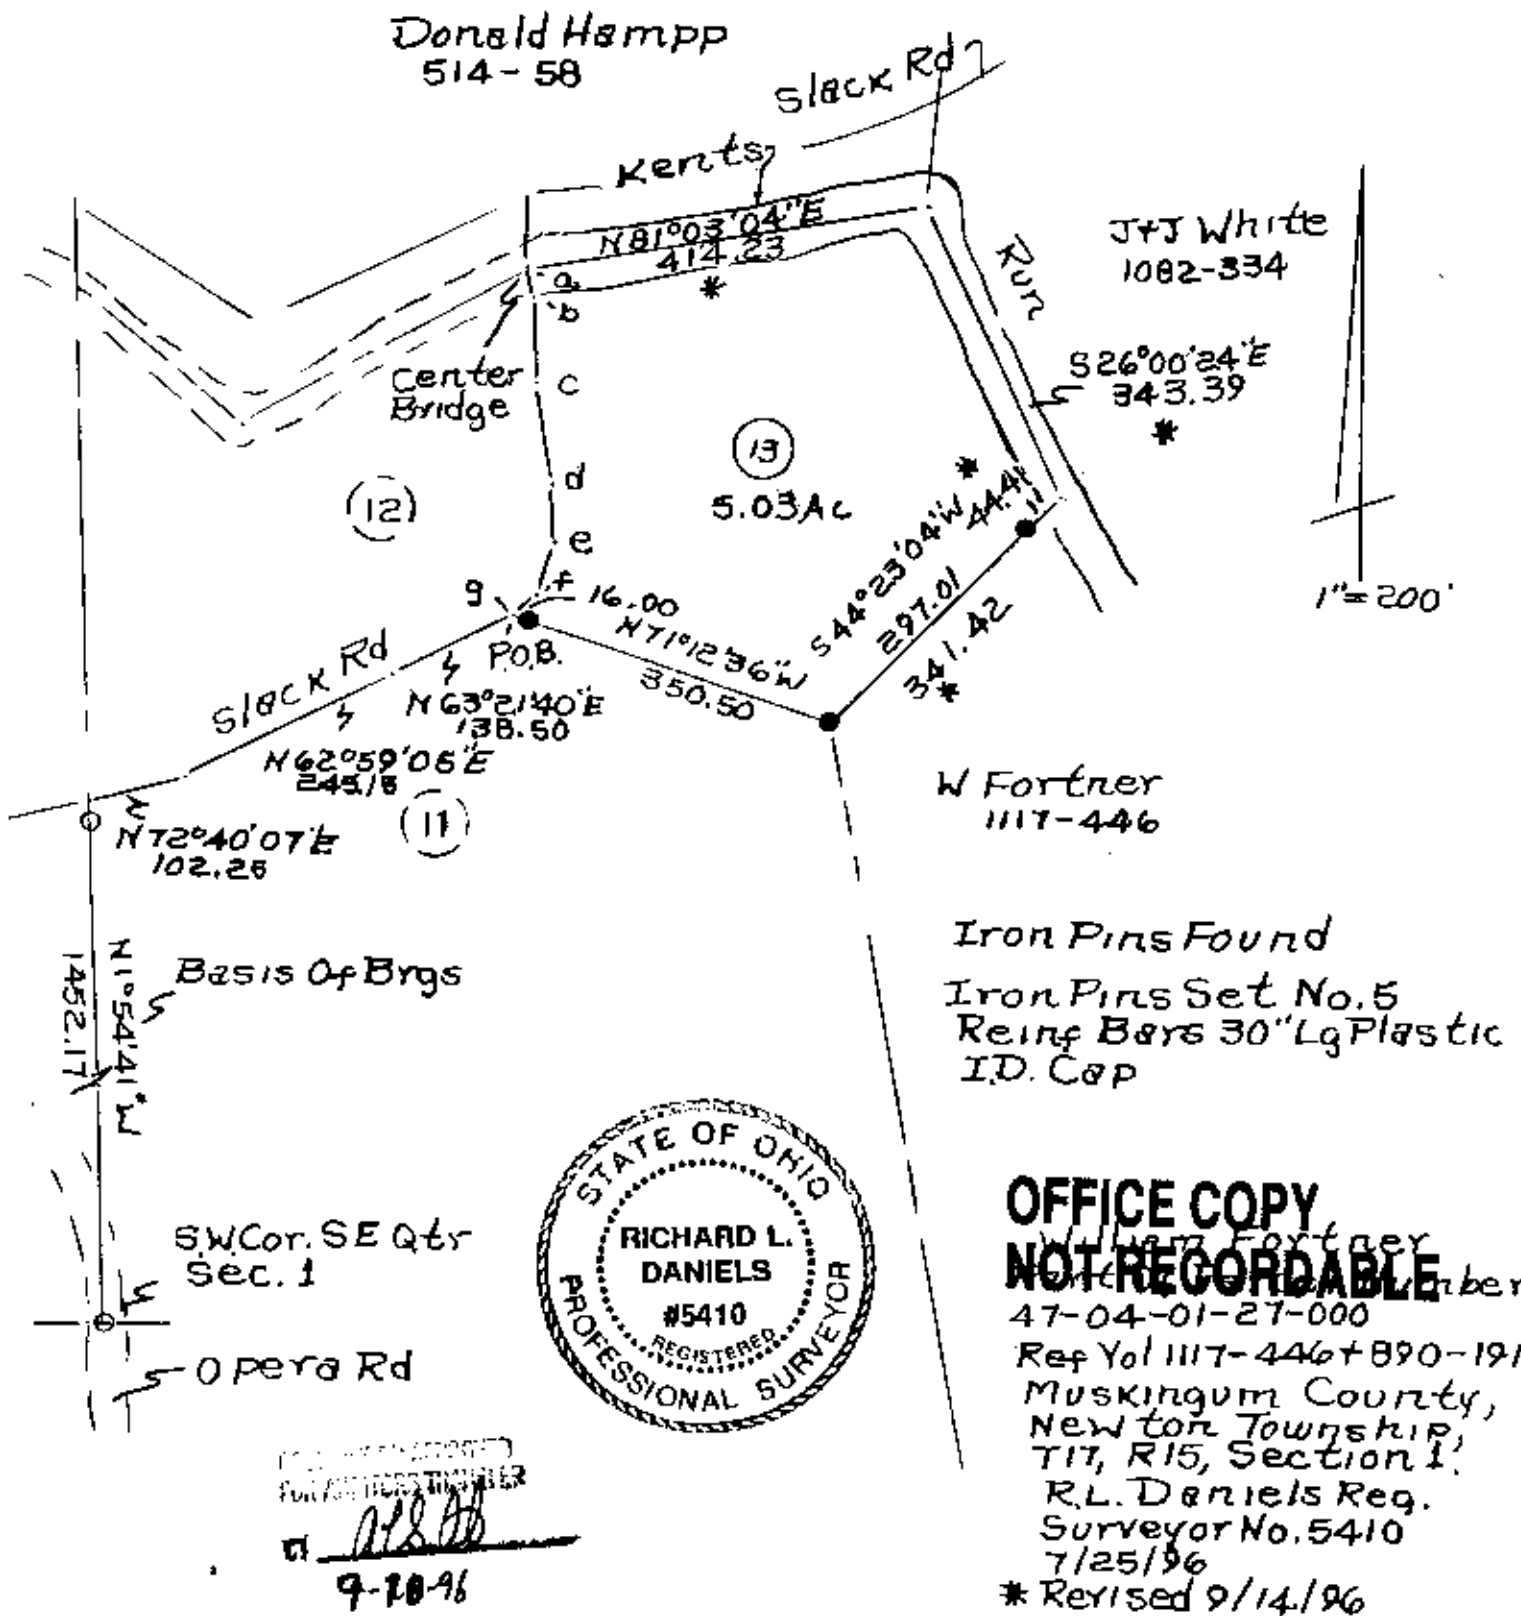 Donald Hampp
514-58
Slack Rd
Kents
Run
N81°03'04"E
414.23
*
J+J White
1082-334
S26°00'24"E
343.39
*
a
b
c
d
e
f
g
Center
Bridge
13
5.03Ac
12
S44°23'04"W
*
44.41
297.01
341.42
*
1"=200'
16.00
N71°12'36"W
350.50
P.O.B.
Slack Rd
N63°21'40"E
138.50
N62°59'05"E
245.15
11
N72°40'07"E
102.25
W Fortner
1117-446
N1°54'41"W
1452.17
Basis Of Brgs
Iron Pins Found
Iron Pins Set No.5
Reinf Bars 30"Lg Plastic
I.D. Cap
S.W.Cor. SE Qtr
Sec. 1
Opera Rd
STATE OF OHIO
RICHARD L.
DANIELS
#5410
REGISTERED
PROFESSIONAL SURVEYOR
OFFICE COPY
William Fortner
NOT RECORDABLE
47-04-01-27-000
Ref Vol 1117-446+890-191
Muskingum County,
Newton Township,
T17, R15, Section 1.
R.L. Daniels Reg.
Surveyor No. 5410
7/25/96
* Revised 9/14/96